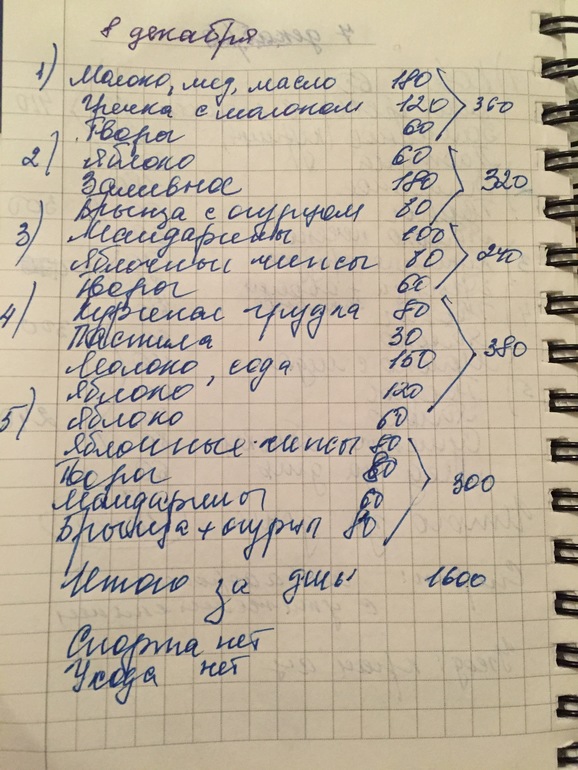 8 декабря
1) Молоко, мед, масло 180
Гречка с молоком 120 360
Творог 60
2) Яблоко 60
Заливное 180 320
Брынза с огурцом 80
3) Мандарины 100
Яблочные чипсы 80 240
Творог 60
4) Куриная грудка 80
Пастила 30
Молоко, сода 150 380
Яблоко 120
5) Яблоко 60
Яблочные чипсы 80
Творог 60
Мандарины 60 300
Брынза + огурцы 80
Итого за день 1600
Спорта нет
Ухода нет